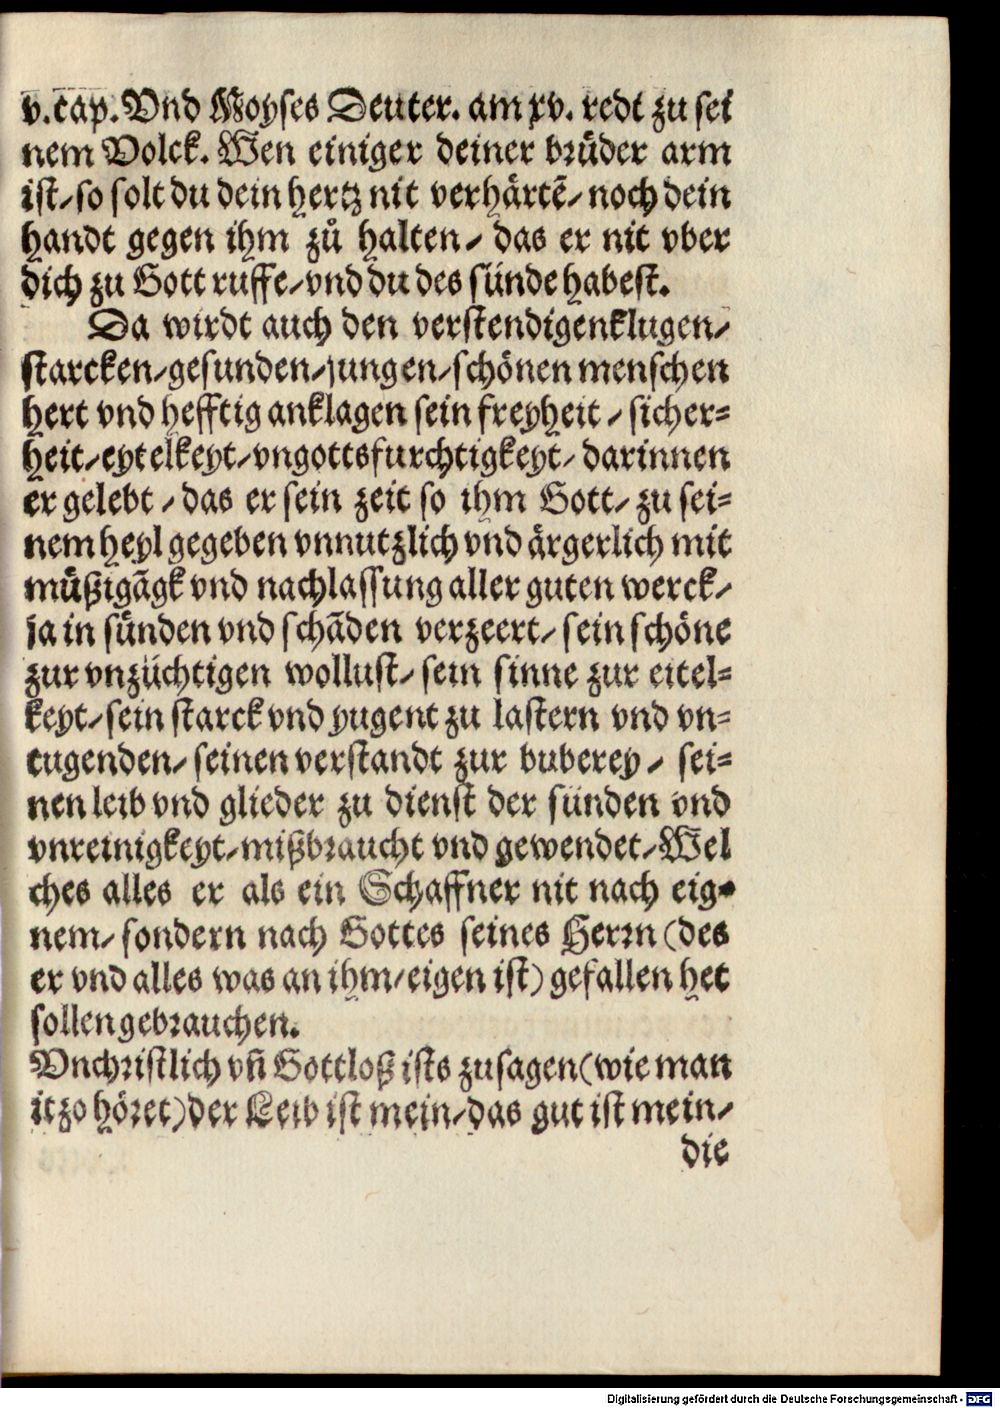 v.cap. Vnd Moyses Deuter. am xv. redt zu sei
nem Volck. Wen einiger deiner brüder arm
ist/ so solt du dein hertz nit verhärtē/ noch dein
handt gegen ihm zů halten/ das er nit vber
dich zu Gott ruffe/ vnd du des sünde habest.
Da wirdt auch den verstendigenklugen/
starcken/ gesunden/ jungen/ schönen menschen
hert vnd hefftig anklagen sein freyheit/ sicher=
heit/ eytelkeyt/ vngottsfurchtigkeyt/ darinnen
er gelebt/ das er sein zeit so ihm Gott/ zu sei=
nem heyl gegeben vnnutzlich vnd ärgerlich mit
müßigāgk vnd nachlassung aller guten werck/
ja in sünden vnd schāden verzeert/ sein schöne
zur vnzüchtigen wollust/ sein sinne zur eitel=
keyt/ sein starck vnd yugent zu lastern vnd vn=
tugenden/ seinen verstandt zur buberey/ sei=
nen leib vnd glieder zu dienst der sünden vnd
vnreinigkeyt/ mißbraucht vnd gewendet/ Wel
ches alles er als ein Schaffner nit nach eig=
nem/ sondern nach Gottes seines Herrn (des
er vnd alles was an ihm/ eigen ist) gefallen het
sollen gebrauchen.
Vnchristlich vn̄ Gottloß ists zusagen (wie man
itzo höret) der Leib ist mein/ das gut ist mein/
die
Digitalisierung gefördert durch die Deutsche Forschungsgemeinschaft - DFG